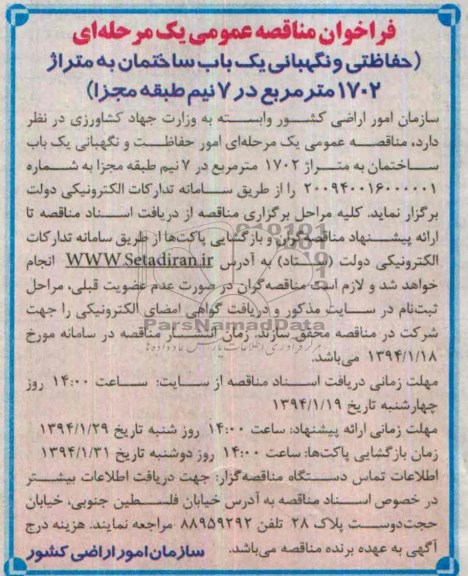 فراخوان مناقصه عمومی یک مرحله‌ای
(حفاظتی و نگهبانی یک باب ساختمان به متراژ
۱۷۰۲ متر مربع در ۷ نیم طبقه مجزا)
سازمان امور اراضی کشور وابسته به وزارت جهاد کشاورزی در نظر
دارد، مناقصه عمومی یک مرحله‌ای امور حفاظت و نگهبانی یک باب
ساختمان به متراژ ۱۷۰۲ مترمربع در ۷ نیم طبقه مجزا به شماره
۲۰۰۹۴۰۰۱۶۰۰۰۰۰۱ را از طریق سامانه تدارکات الکترونیکی دولت
برگزار نماید. کلیه مراحل برگزاری مناقصه از دریافت اسناد مناقصه تا
ارائه پیشنهاد مناقصه‌گران و بازگشایی پاکت‌ها از طریق سامانه تدارکات
الکترونیکی دولت (ستاد) به آدرس WWW.Setadiran.ir انجام
خواهد شد و لازم است مناقصه‌گران در صورت عدم عضویت قبلی، مراحل
ثبت‌نام در سایت مذکور و دریافت گواهی امضای الکترونیکی را جهت
شرکت در مناقصه محقق سازند. زمان انتشار مناقصه در سامانه مورخ
۱۳۹۴/۱/۱۸ می‌باشد.
مهلت زمانی دریافت اسناد مناقصه از سایت: ساعت ۱۴:۰۰ روز
چهارشنبه تاریخ ۱۳۹۴/۱/۱۹
مهلت زمانی ارائه پیشنهاد: ساعت ۱۴:۰۰ روز شنبه تاریخ ۱۳۹۴/۱/۲۹
زمان بازگشایی پاکت‌ها: ساعت ۱۴:۰۰ روز دوشنبه تاریخ ۱۳۹۴/۱/۳۱
اطلاعات تماس دستگاه مناقصه‌گزار: جهت دریافت اطلاعات بیشتر
در خصوص اسناد مناقصه به آدرس خیابان فلسطین جنوبی، خیابان
حجت‌دوست پلاک ۲۸ تلفن ۸۸۹۵۹۲۹۲ مراجعه نمایند. هزینه درج
آگهی به عهده برنده مناقصه می‌باشد.
سازمان امور اراضی کشور
ParsNamadData